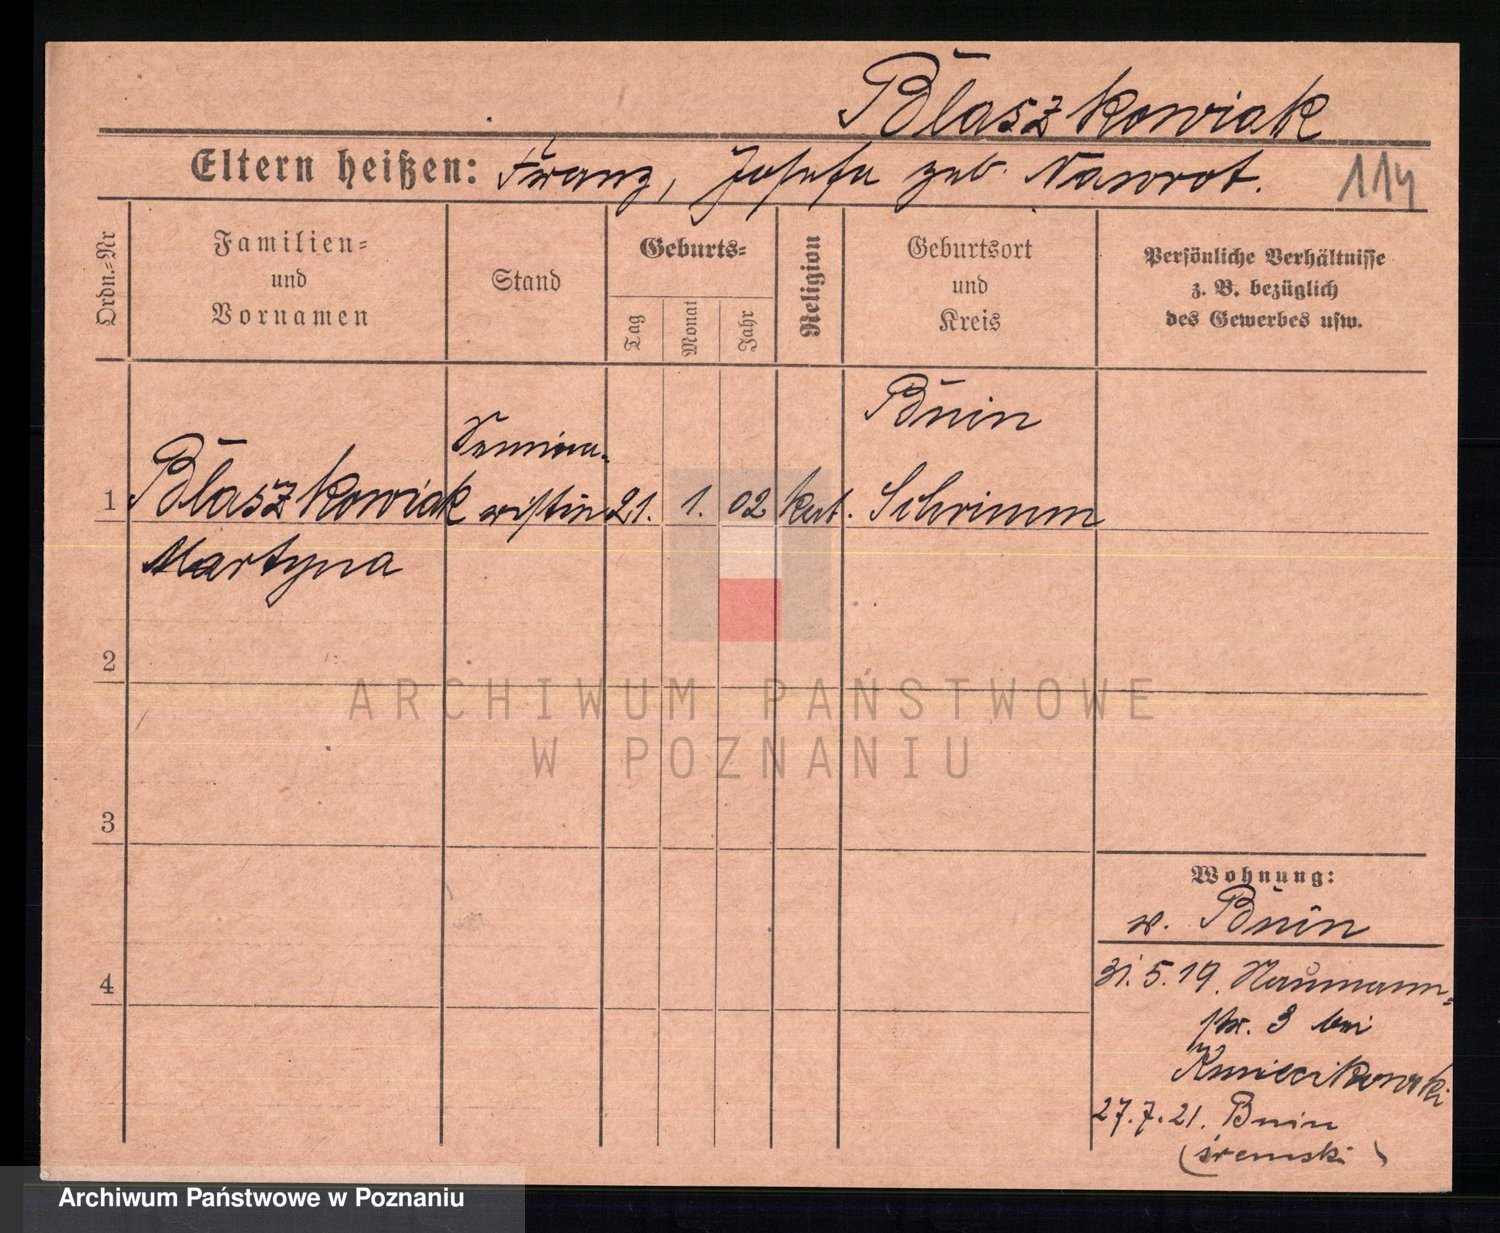 Błaszkowiak
Eltern heißen: Franz, Josefa geb. Nawrot.
114
Ordn.=Nr
Familien=
und
Vornamen
Stand
Geburts=
Tag
Monat
Jahr
Religion
Geburtsort
und
Kreis
Persönliche Verhältnisse
z. B. bezüglich
des Gewerbes usw.
1
Błaszkowiak
Martyna
Semina-
ristin
21. 1. 02
kat.
Bnin
Schrimm
2
3
4
Wohnung:
v. Bnin
31. 5. 19. Naumann=
str. 3 bei
27. 7. 21. Bnin
(śremski)
ARCHIWUM PAŃSTWOWE
W POZNANIU
Archiwum Państwowe w Poznaniu